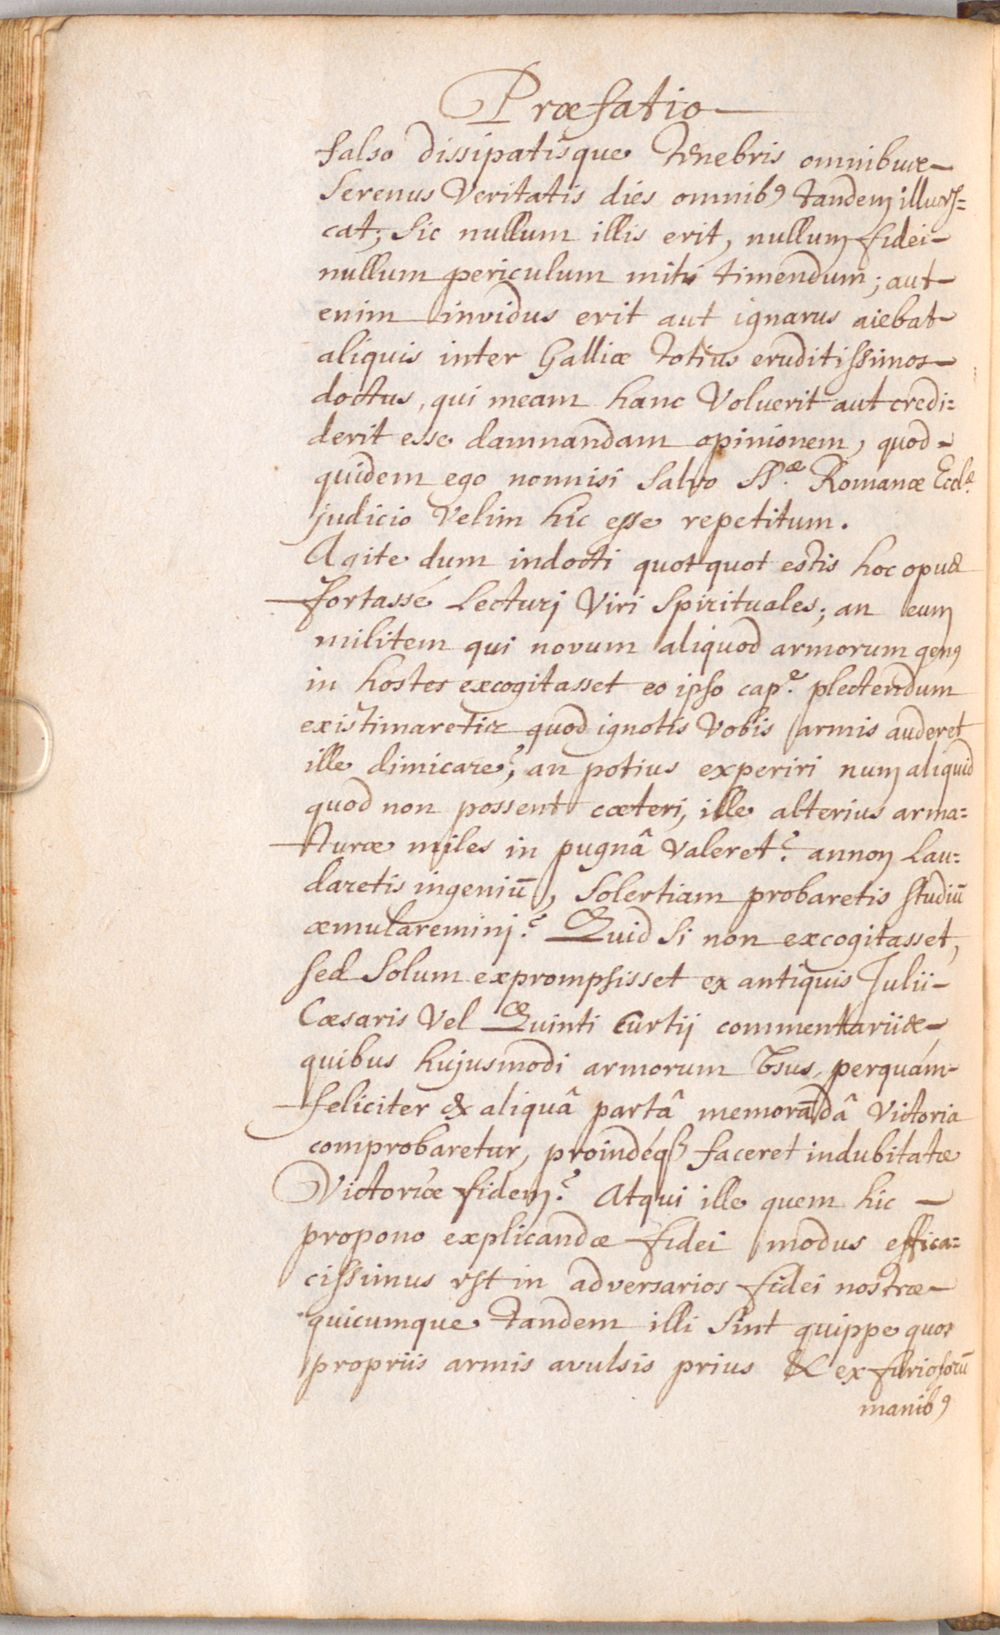 Præfatio
falso dissipatisque tenebris omnibus
Serenus Veritatis dies omnib9 tandem illuces=
cat; Sic nullum illis erit, nullum fidei
nullum periculum mihi timendum; aut
enim invidus erit aut ignarus aiebat
aliquis inter Galliæ totius eruditissimos
doctus, qui meam hanc Voluerit aut credi=
derit esse damnandam opinionem, quod
quidem ego nonnisi Salvo SS.æ Romanæ Eccl.æ
judicio Velim hic esse repetitum.
Agite dum indocti quotquot estis hoc opus
fortassé Lecturi Viri Spirituales; an eum
militem qui novum aliquod armorum gen9
in hostes excogitasset eo ipso cap.e plectendum
existimaretis quod ignotis Vobis armis auderet
ille dimicare? an potius experiri num aliquid
quod non possent cæteri, ille alterius arma=
turæ miles in pugnâ Valeret? annon Lau=
daretis ingeniū, Solertiam probaretis studiū
æmularemini? Quid Si non excogitasset,
sed Solum exprompsisset ex antiquis Julii
Cæsaris Vel Quinti Curtij commentariis
quibus hujusmodi armorum Usus perquám
feliciter & aliquâ partâ memorādâ Victoria
comprobaretur, proindéq3 faceret indubitatæ
Victoriæ fidem? Atqui ille quem hic
propono explicandæ fidei modus effica=
cissimus est in adversarios fidei nostræ
quicumque tandem illi Sint quippe quos
propriis armis avulsis prius & ex furiosorū
manib9